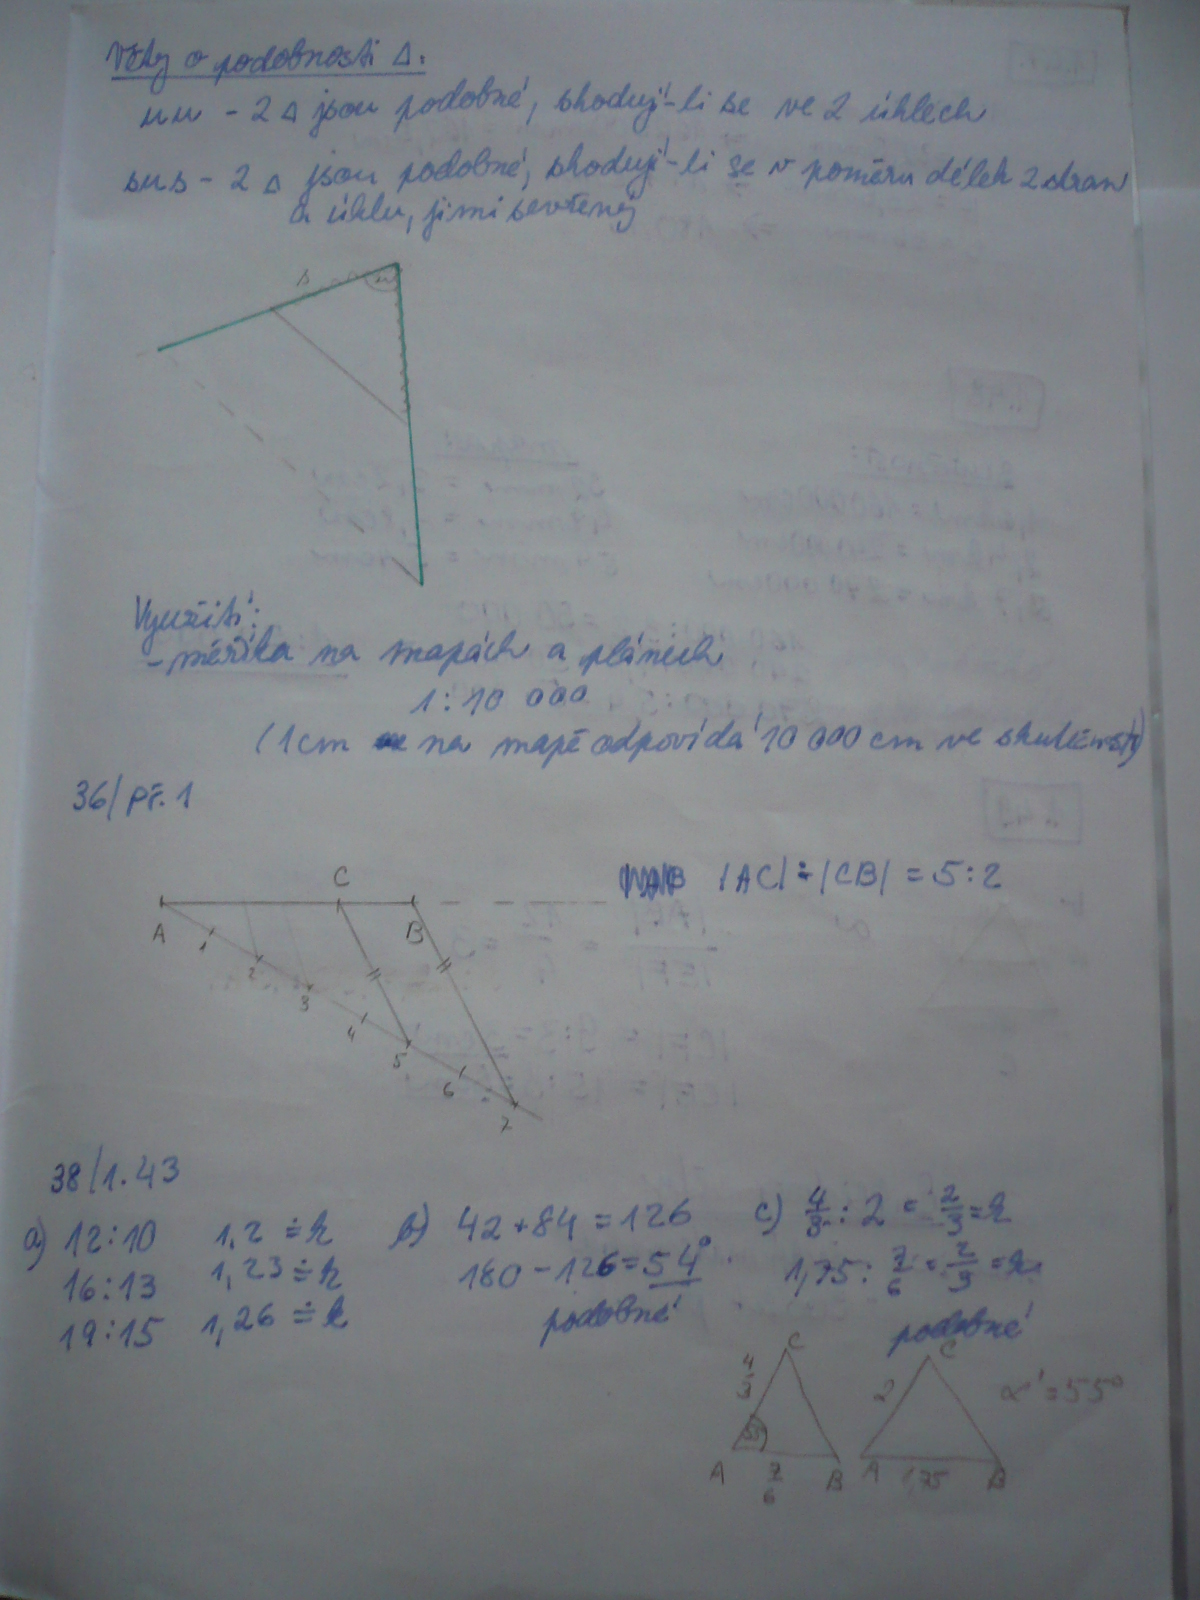 Věty o podobnosti Δ.
uu - 2 Δ jsou podobné, shodují-li se ve 2 úhlech
sus - 2 Δ jsou podobné, shodují-li se v poměru délek 2 stran
a úhlu, jimi sevřený
Využití:
- měřítka na mapách a plánech
1:10 000
(1cm na mapě odpovídá 10 000 cm ve skutečnosti)
36/př. 1
|AC| : |CB| = 5:2
A C B
1
2
3
4
5
6
7
38/1.43
a) 12:10 1,2 ≐ k
16:13 1,23 ≐ k
19:15 1,26 ≐ k
b) 42 + 84 = 126
180 - 126 = 54°
podobné
c) 4/3 : 2 = 2/3 = k
1,75 : 7/6 = 2/3 = k
podobné
C C
4/3 2 α' = 55°
A 7/6 B A 1,75 B